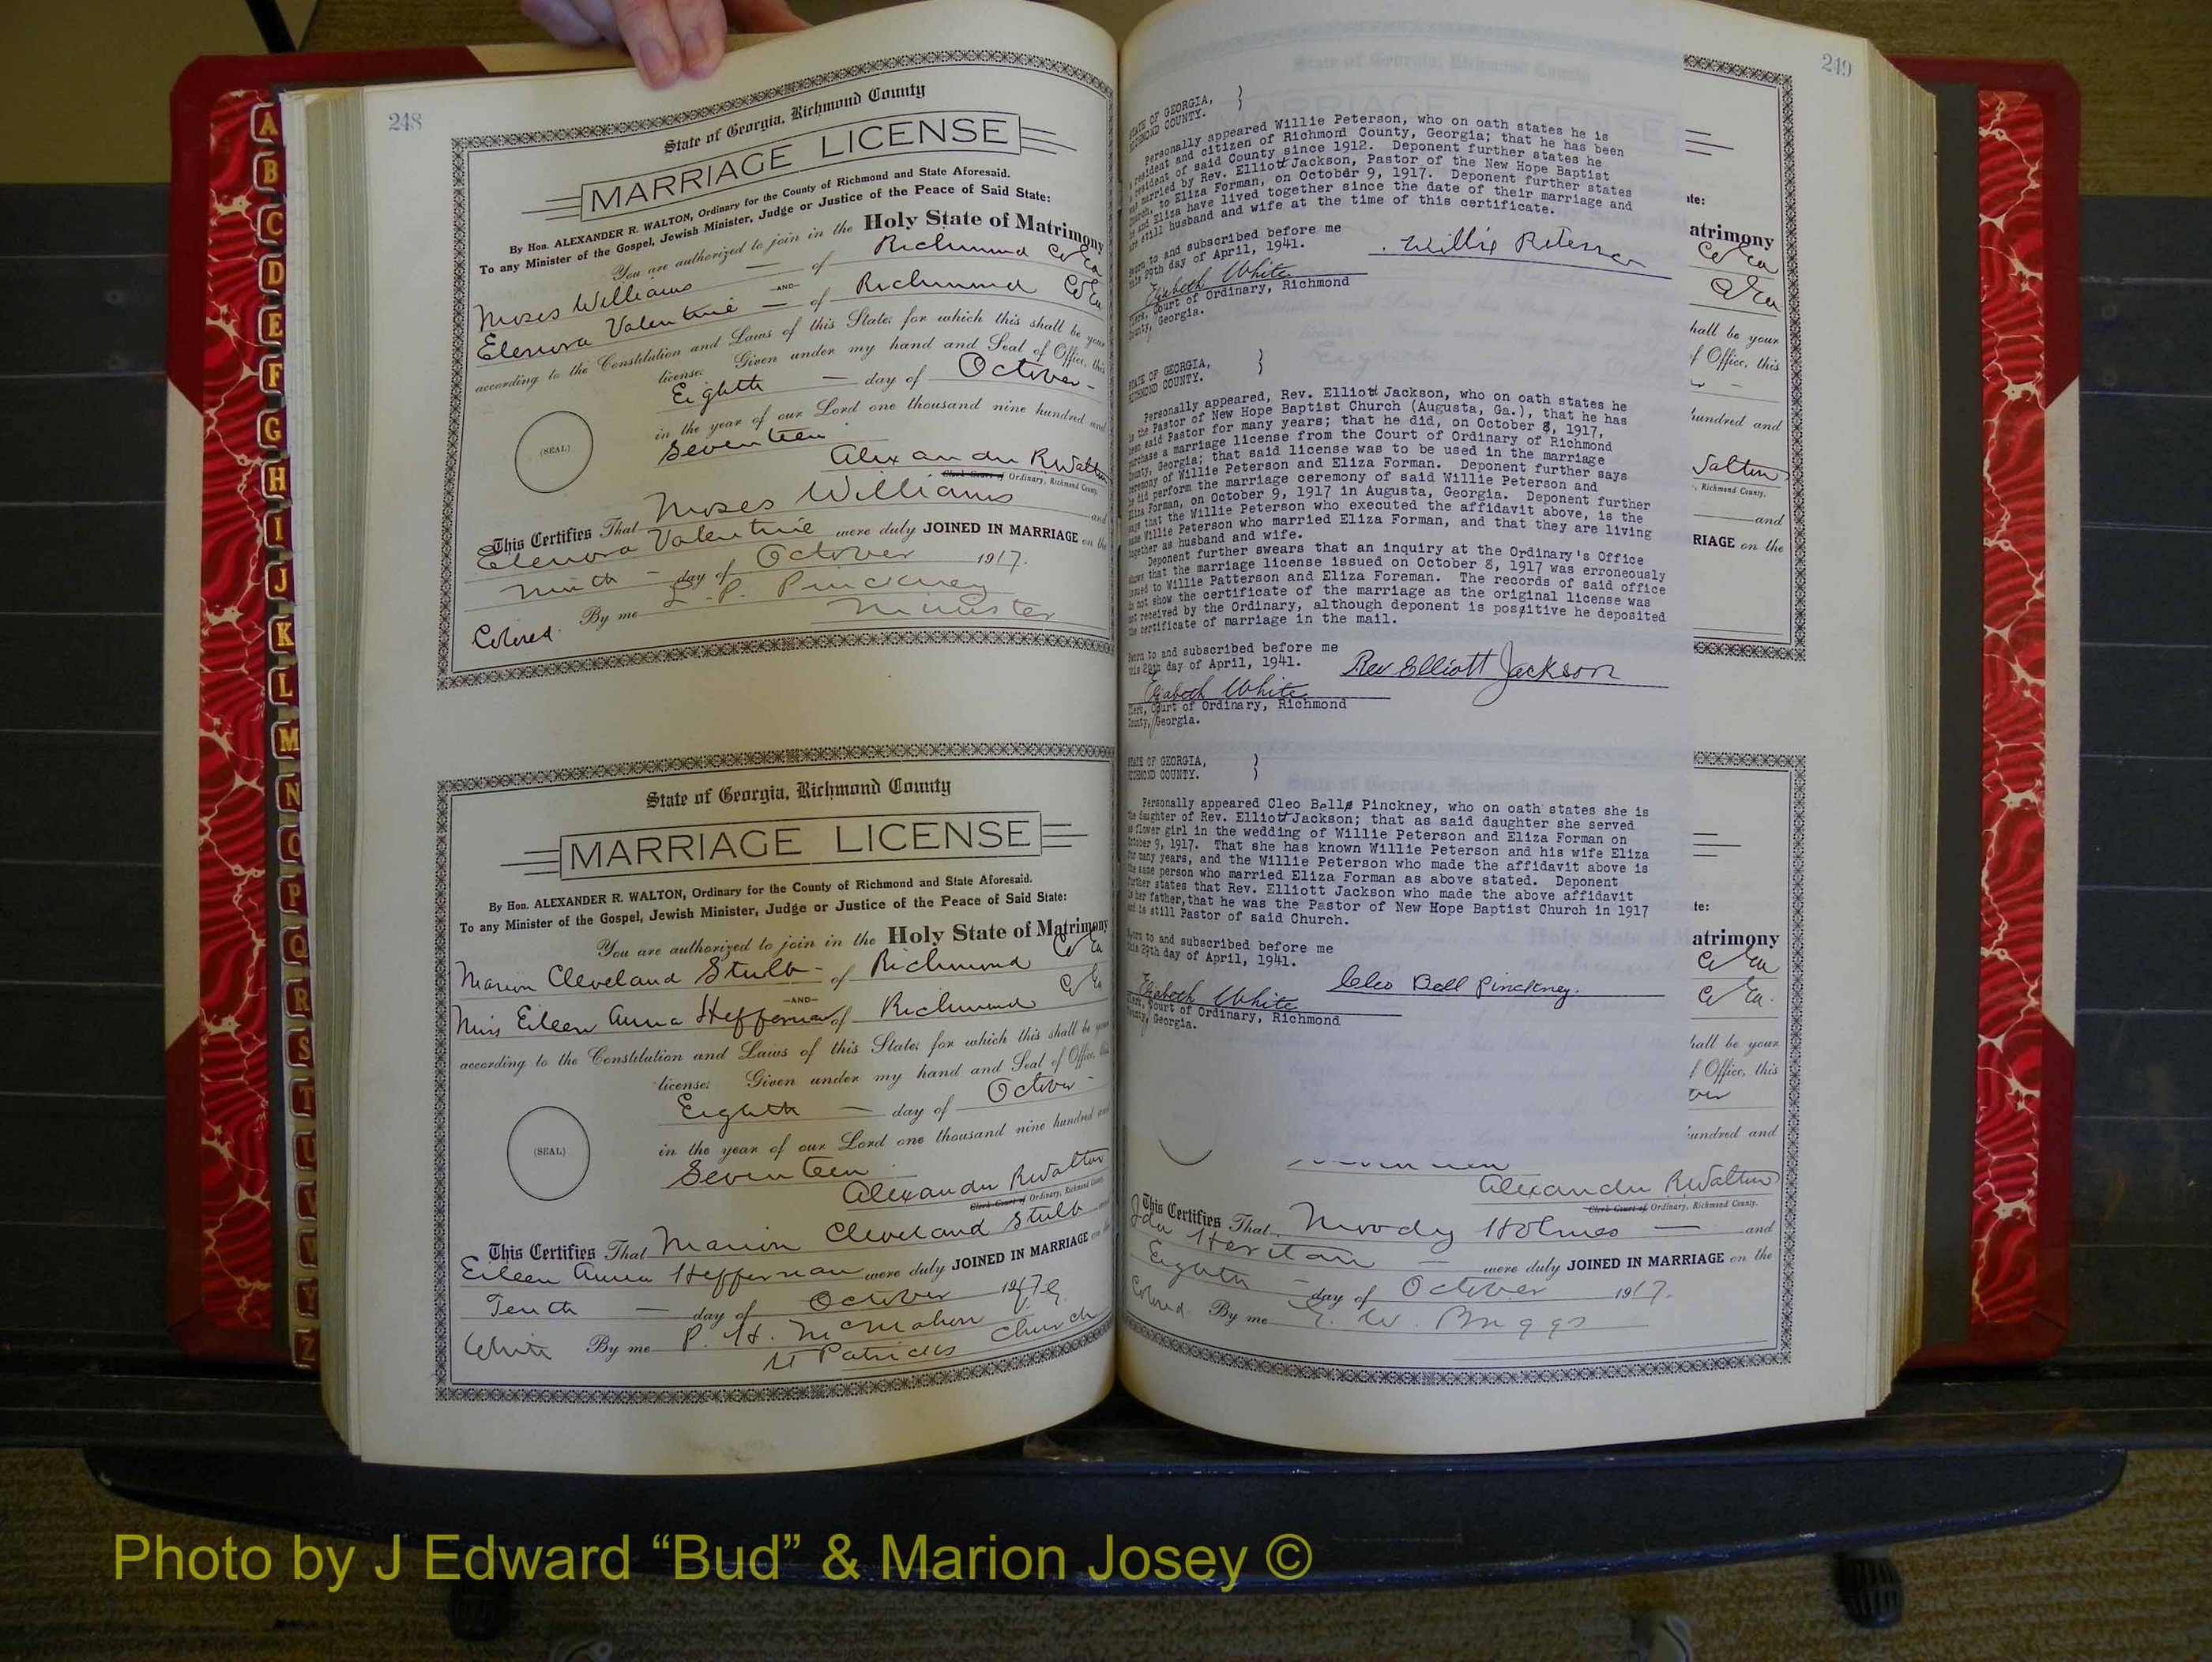 248
State of Georgia, Richmond County
MARRIAGE LICENSE
By Hon. ALEXANDER R. WALTON, Ordinary for the County of Richmond and State Aforesaid.
To any Minister of the Gospel, Jewish Minister, Judge or Justice of the Peace of Said State:
You are authorized to join in the Holy State of Matrimony
Moses Williams — of Richmond Co Ga
—AND—
Elenora Valentine — of Richmond Co Ga
according to the Constitution and Laws of this State; for which this shall be your
license. Given under my hand and Seal of Office, this
Eighth — day of October -
in the year of our Lord one thousand nine hundred and
Seventeen
(SEAL)
Alexander R Walton
Clerk Court of Ordinary, Richmond County.
This Certifies That Moses Williams and
Elenora Valentine were duly JOINED IN MARRIAGE on the
Ninth — day of October 1917.
By me L. P. Pinckney
Colored. Minister
State of Georgia, Richmond County
MARRIAGE LICENSE
By Hon. ALEXANDER R. WALTON, Ordinary for the County of Richmond and State Aforesaid.
To any Minister of the Gospel, Jewish Minister, Judge or Justice of the Peace of Said State:
You are authorized to join in the Holy State of Matrimony
Marion Cleveland Stulb - of Richmond Co Ga
—AND—
Miss Eileen Anna Heffernan of Richmond Co Ga
according to the Constitution and Laws of this State; for which this shall be your
license. Given under my hand and Seal of Office, this
Eighth — day of October -
in the year of our Lord one thousand nine hundred and
Seventeen
(SEAL)
Alexander R Walton
Clerk Court of Ordinary, Richmond County.
This Certifies That Marion Cleveland Stulb and
Eileen Anna Heffernan were duly JOINED IN MARRIAGE on the
Tenth — day of October 1917
White By me P. H. McMahon
St Patricks Church
249
STATE OF GEORGIA, }
RICHMOND COUNTY.
Personally appeared Willie Peterson, who on oath states he is
a resident and citizen of Richmond County, Georgia; that he has been
a resident of said County since 1912. Deponent further states he
was married by Rev. Elliott Jackson, Pastor of the New Hope Baptist
Church, to Eliza Forman, on October 9, 1917. Deponent further states
he and Eliza have lived together since the date of their marriage and
are still husband and wife at the time of this certificate.
Sworn to and subscribed before me
this 29th day of April, 1941.
Willie Peterson
Elizabeth White
Clerk, Court of Ordinary, Richmond
County, Georgia.
STATE OF GEORGIA, }
RICHMOND COUNTY.
Personally appeared, Rev. Elliott Jackson, who on oath states he
is the Pastor of New Hope Baptist Church (Augusta, Ga.), that he has
been said Pastor for many years; that he did, on October 8, 1917,
purchase a marriage license from the Court of Ordinary of Richmond
County, Georgia; that said license was to be used in the marriage
ceremony of Willie Peterson and Eliza Forman. Deponent further says
he did perform the marriage ceremony of said Willie Peterson and
Eliza Forman, on October 9, 1917 in Augusta, Georgia. Deponent further
says that the Willie Peterson who executed the affidavit above, is the
same Willie Peterson who married Eliza Forman, and that they are living
together as husband and wife.
Deponent further swears that an inquiry at the Ordinary's Office
shows that the marriage license issued on October 8, 1917 was erroneously
issued to Willie Patterson and Eliza Foreman. The records of said office
do not show the certificate of the marriage as the original license was
not received by the Ordinary, although deponent is positive he deposited
the certificate of marriage in the mail.
Sworn to and subscribed before me
this 29th day of April, 1941.
Rev Elliott Jackson
Elizabeth White
Clerk, Court of Ordinary, Richmond
County, Georgia.
STATE OF GEORGIA, }
RICHMOND COUNTY. }
Personally appeared Cleo Belle Pinckney, who on oath states she is
the daughter of Rev. Elliott Jackson; that as said daughter she served
as flower girl in the wedding of Willie Peterson and Eliza Forman on
October 9, 1917. That she has known Willie Peterson and his wife Eliza
for many years, and the Willie Peterson who made the affidavit above is
the same person who married Eliza Forman as above stated. Deponent
further states that Rev. Elliott Jackson who made the above affidavit
is her father, that he was the Pastor of New Hope Baptist Church in 1917
and is still Pastor of said Church.
Sworn to and subscribed before me
this 29th day of April, 1941.
Cleo Bell Pinckney.
Elizabeth White
Clerk, Court of Ordinary, Richmond
County, Georgia.
ate:
atrimony
Co Ga
Co Ga
hall be your
f Office, this
hundred and
Walton
, Richmond County.
and
RIAGE on the
te:
atrimony
Co Ga
Co Ga.
hall be your
f Office, this
ber
undred and
Alexander R. Walton
Clerk Court of Ordinary, Richmond County.
This Certifies That Moody Holmes — and
Ida — were duly JOINED IN MARRIAGE on the
Eighth — day of October 1917.
Colored By me E. W. Briggs
A
B
C
D
E
F
G
H
I
J
K
L
M
N
O
P
Q
R
S
T
U
V
W
Y
Z
Photo by J Edward “Bud” & Marion Josey ©